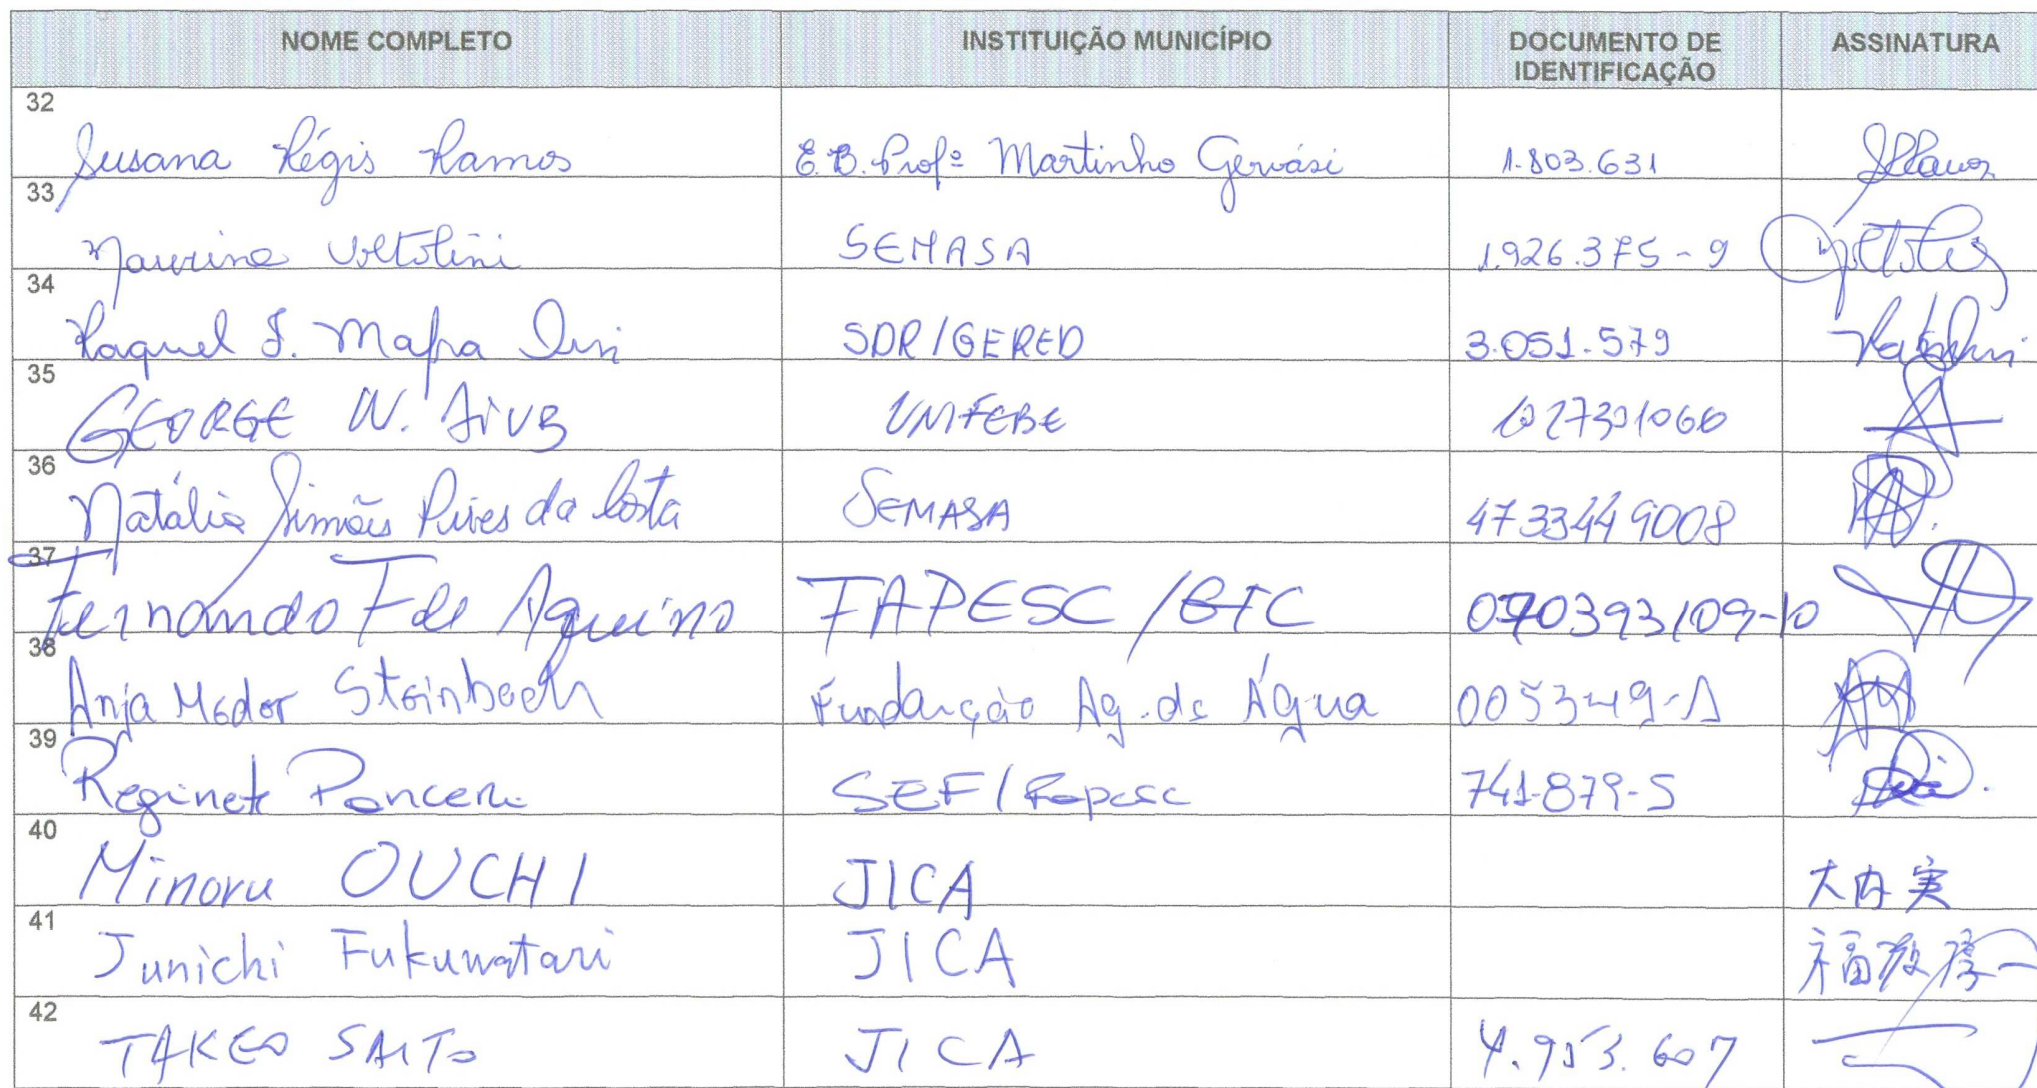 NOME COMPLETO INSTITUIÇÃO MUNICÍPIO DOCUMENTO DE IDENTIFICAÇÃO ASSINATURA
32 Susana Régis Ramos E.B. Profº Martinho Gervási 1.803.631
33 Maurino Voltolini SEMASA 1.926.375-9
34 Raquel Mafra SDR/GERED 3.051.579
35 GEORGE W. UNIFEBE
36 Natália Simões Pires da Costa SEMASA 4733449008
37 Fernando F de Aquino FAPESC/GTC
38 Anja Meder Steinbach Fundação Ag. de Água
39 Reginete Panceri SEF/Fapesc 741.879-5
40 Minoru OUCHI JICA 大内実
41 Junichi Fukuwatari JICA 福渡淳一
42 TAKEO SAITO JICA 4.953.607